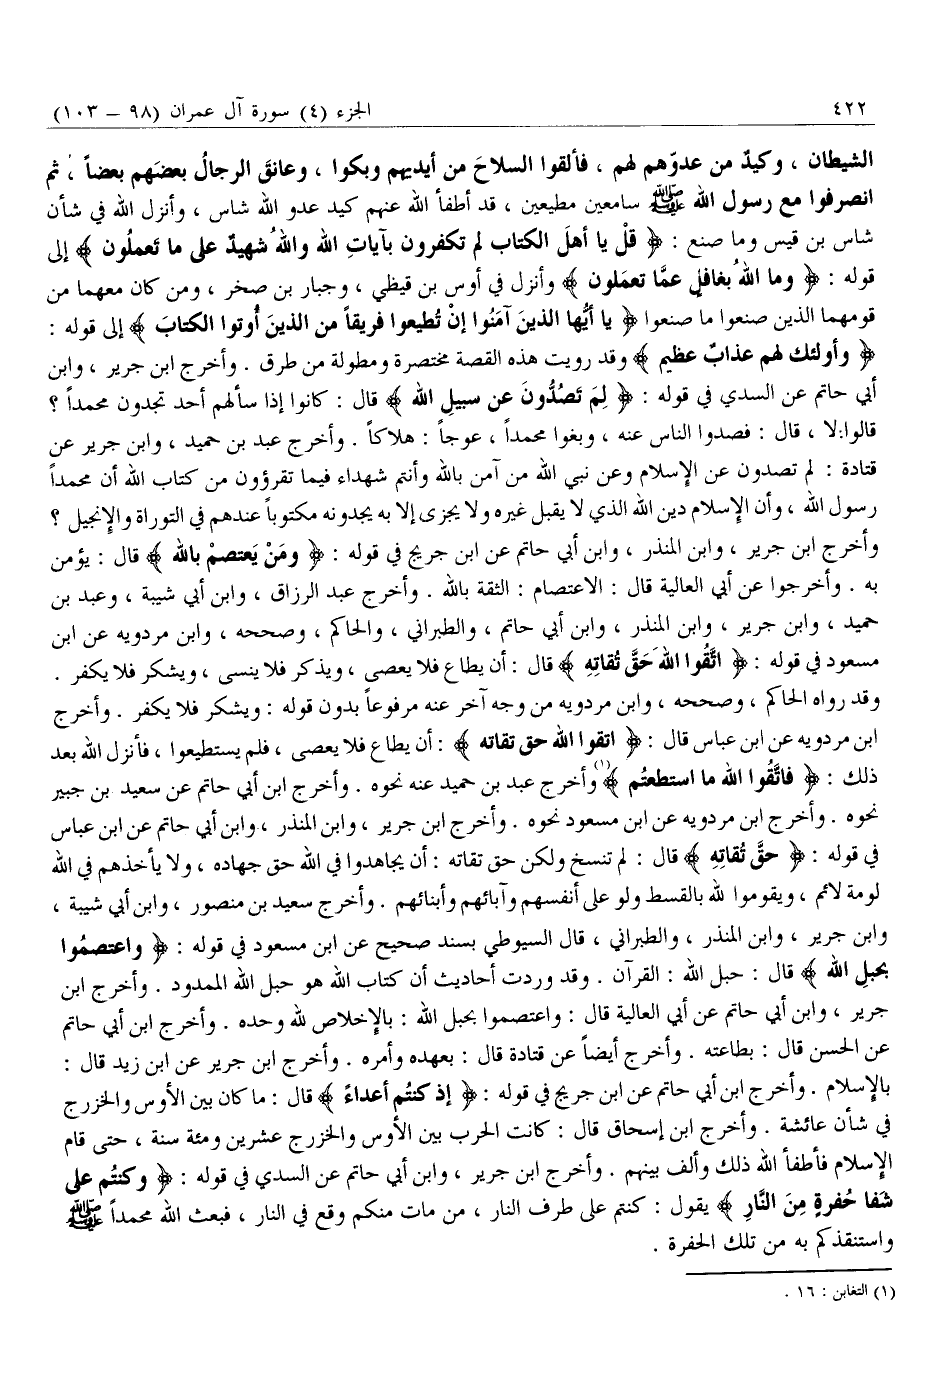 ٤٢٢ الجزء (٤) سورة آل عمران (٩٨ – ١٠٣)
الشيطان ، وكيدٌ من عدوّهم لهم ، فألقوا السلاحَ من أيديهم وبكوا ، وعانقَ الرجالُ بعضَهم بعضاً ، ثم
انصرفوا مع رسول الله ﷺ سامعين مطيعين ، قد أطفأ الله عنهم كيد عدو الله شاس ، وأنزل الله في شأن
شاس بن قيس وما صنع : ﴿ قلْ يا أهلَ الكتاب لم تكفرون بآياتِ الله واللهُ شهيدٌ على ما تَعملُون ﴾ إلى
قوله : ﴿ وما اللهُ بغافلٍ عمَّا تعمَلون ﴾ وأنزل في أوس بن قيظي ، وجبار بن صخر ، ومن كان معهما من
قومهما الذين صنعوا ما صنعوا ﴿ يا أيُّها الذينَ آمَنُوا إنْ تُطيعوا فريقاً من الذينَ أُوتوا الكتابَ ﴾ إلى قوله :
﴿ وأولئك لهم عذابٌ عظيم ﴾ وقد رويت هذه القصة مختصرة ومطولة من طرق . وأخرج ابن جرير ، وابن
أبي حاتم عن السدي في قوله : ﴿ لِمَ تَصُدُّونَ عن سبيلِ الله ﴾ قال : كانوا إذا سألهم أحد تجدون محمداً ؟
قالوا:لا ، قال : فصدوا الناس عنه ، وبغوا محمداً ، عوجاً : هلاكاً . وأخرج عبد بن حميد ، وابن جرير عن
قتادة : لم تصدون عن الإسلام وعن نبي الله من آمن بالله وأنتم شهداء فيما تقرؤون من كتاب الله أن محمداً
رسول الله ، وأن الإسلام دين الله الذي لا يقبل غيره ولا يجزى إلا به يجدونه مكتوباً عندهم في التوراة والإنجيل ؟
وأخرج ابن جرير ، وابن المنذر ، وابن أبي حاتم عن ابن جريج في قوله : ﴿ ومَنْ يَعتصمْ بالله ﴾ قال : يؤمن
به . وأخرجوا عن أبي العالية قال : الاعتصام : الثقة بالله . وأخرج عبد الرزاق ، وابن أبي شيبة ، وعبد بن
حميد ، وابن جرير ، وابن المنذر ، وابن أبي حاتم ، والطبراني ، والحاكم ، وصححه ، وابن مردويه عن ابن
مسعود في قوله : ﴿ اتَّقُوا اللهَ حَقَّ تُقاتِهِ ﴾ قال : أن يطاع فلا يعصى ، ويذكر فلا ينسى ، ويشكر فلا يكفر .
وقد رواه الحاكم ، وصححه ، وابن مردويه من وجه آخر عنه مرفوعاً بدون قوله : ويشكر فلا يكفر . وأخرج
ابن مردويه عن ابن عباس قال : ﴿ اتقوا الله حق تقاته ﴾ : أن يطاع فلا يعصى ، فلم يستطيعوا ، فأنزل الله بعد
ذلك : ﴿ فاتَّقُوا الله ما استطعتُم ﴾(١) وأخرج عبد بن حميد عنه نحوه . وأخرج ابن أبي حاتم عن سعيد بن جبير
نحوه . وأخرج ابن مردويه عن ابن مسعود نحوه . وأخرج ابن جرير ، وابن المنذر ، وابن أبي حاتم عن ابن عباس
في قوله : ﴿ حقَّ تُقاتِهِ ﴾ قال : لم تنسخ ولكن حق تقاته : أن يجاهدوا في الله حق جهاده ، ولا يأخذهم في الله
لومة لائم ، ويقوموا لله بالقسط ولو على أنفسهم وآبائهم وأبنائهم . وأخرج سعيد بن منصور ، وابن أبي شيبة ،
وابن جرير ، وابن المنذر ، والطبراني ، قال السيوطي بسند صحيح عن ابن مسعود في قوله : ﴿ واعتصمُوا
بحبلِ الله ﴾ قال : حبل الله : القرآن . وقد وردت أحاديث أن كتاب الله هو حبل الله الممدود . وأخرج ابن
جرير ، وابن أبي حاتم عن أبي العالية قال : واعتصموا بحبل الله : بالإخلاص لله وحده . وأخرج ابن أبي حاتم
عن الحسن قال : بطاعته . وأخرج أيضاً عن قتادة قال : بعهده وأمره . وأخرج ابن جرير عن ابن زيد قال :
بالإسلام . وأخرج ابن أبي حاتم عن ابن جريج في قوله : ﴿ إذ كنتُم أعداءً ﴾ قال : ما كان بين الأوس والخزرج
في شأن عائشة . وأخرج ابن إسحاق قال : كانت الحرب بين الأوس والخزرج عشرين ومئة سنة ، حتى قام
الإسلام فأطفأ الله ذلك وألف بينهم . وأخرج ابن جرير ، وابن أبي حاتم عن السدي في قوله : ﴿ وكنتُم على
شَفا حُفرةٍ مِنَ النَّارِ ﴾ يقول : كنتم على طرف النار ، من مات منكم وقع في النار ، فبعث الله محمداً ﷺ
واستنقذكم به من تلك الحفرة .
(١) التغابن : ١٦ .